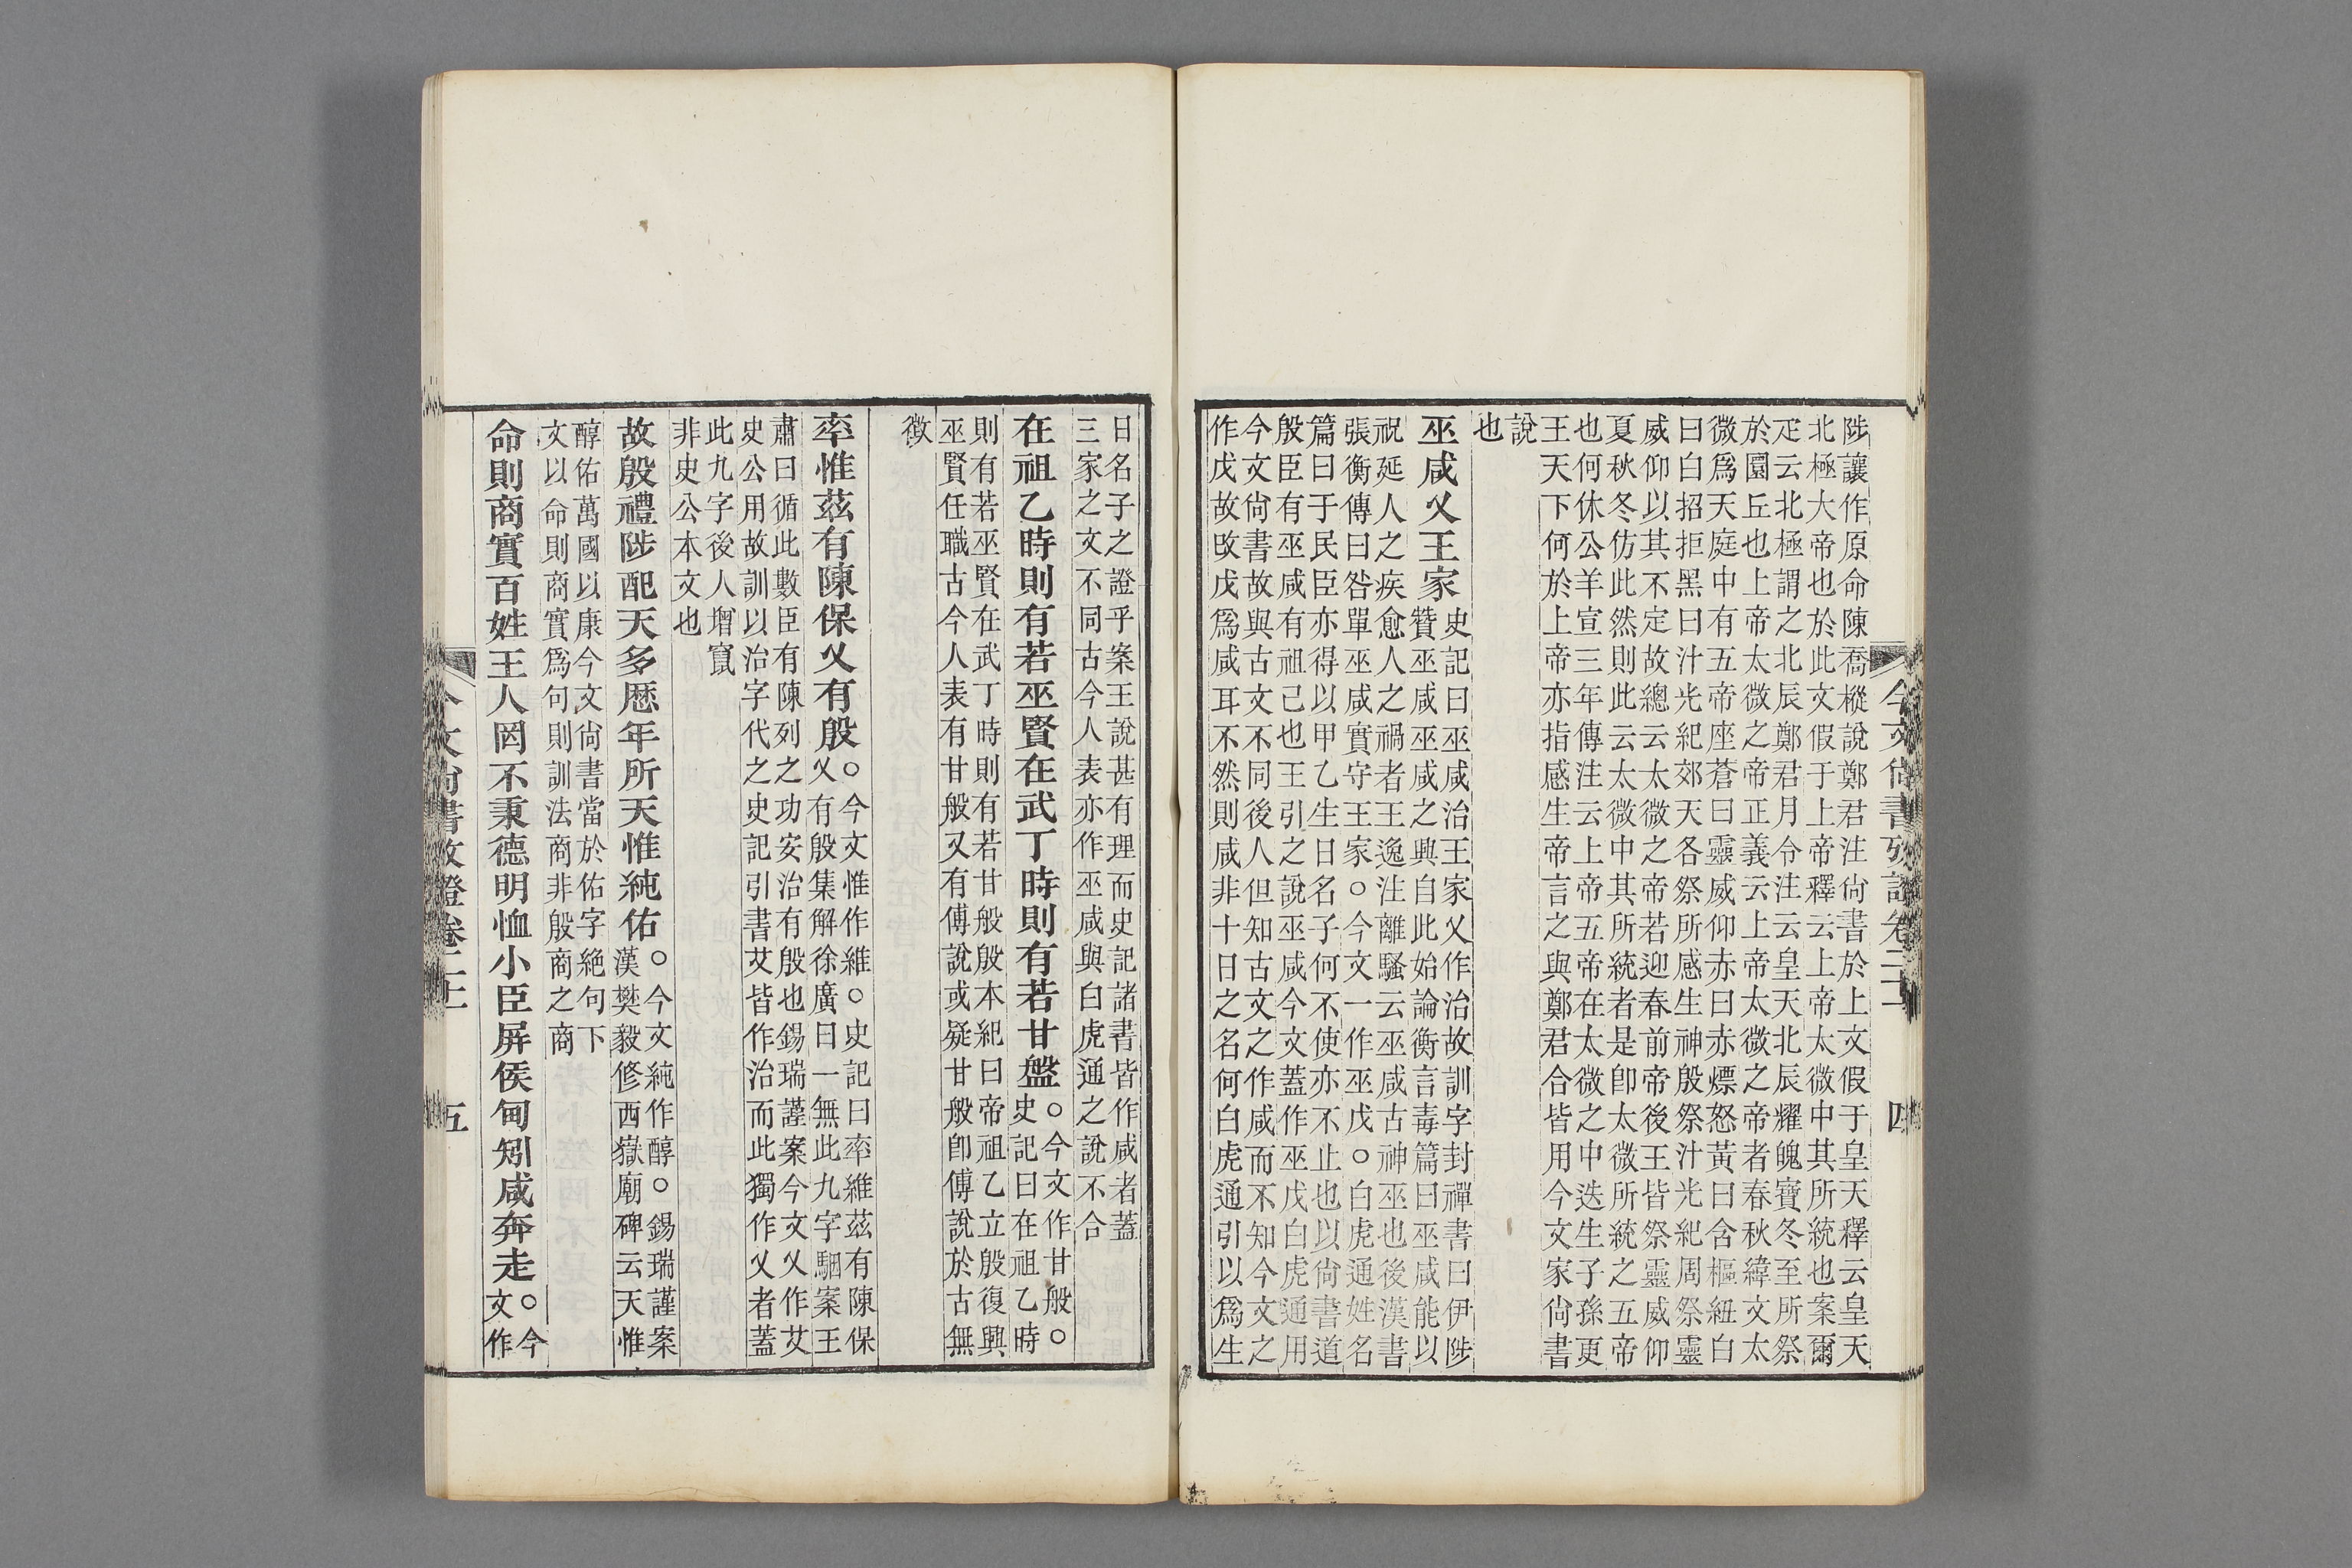 陟讓作原命陳喬樅說鄭君注尙書於上文假于皇天釋云皇天
北極大帝也於此文假于上帝釋云上帝太微中其所統也案爾
疋云北極謂之北辰鄭君月令注云皇天北辰耀魄寶冬至所祭
於圜丘也上帝太微之帝正義云上帝太微之帝者春秋緯文太
微爲天庭中有五帝座蒼曰靈威仰赤曰赤熛怒黃曰含樞紐白
曰白招拒黑曰汁光紀郊天各祭所感生神殷祭汁光紀周祭靈
威仰以其不定故總云太微之帝若迎春前帝後王皆祭靈威仰
夏秋冬仿此然則此云太微中其所統者是卽太微所統之五帝
也何休公羊宣三年傳注云上帝五帝在太微之中迭生子孫更
王天下何於上帝亦指感生帝言之與鄭君合皆用今文家尙書
說
也
巫咸乂王家
史記曰巫咸治王家乂作治故訓字封禪書曰伊陟
贊巫咸巫咸之興自此始論衡言毒篇曰巫咸能以
祝延人之疾愈人之禍者王逸注離騷云巫咸古神巫也後漢書
張衡傳曰咎單巫咸實守王家○今文一作巫戊○白虎通姓名
篇曰于民臣亦得以甲乙生日名子何不使亦不止也以尙書道
殷臣有巫咸有祖己也王引之說巫咸今文蓋作巫戊白虎通用
今文尙書故與古文不同後人但知古文之作咸而不知今文之
作戊故改戊爲咸耳不然則咸非十日之名何白虎通引以爲生
今文尙書攷證卷二十 四
日名子之證乎案王說甚有理而史記諸書皆作咸者蓋
三家之文不同古今人表亦作巫咸與白虎通之說不合
在祖乙時則有若巫賢在武丁時則有若甘盤
○今文作甘般○
史記曰在祖乙時
則有若巫賢在武丁時則有若甘般殷本紀曰帝祖乙立殷復興
巫賢任職古今人表有甘般又有傅說或疑甘般卽傅說於古無
徵
率惟茲有陳保乂有殷
○今文惟作維○史記曰率維茲有陳保
乂有殷集解徐廣曰一無此九字駰案王
肅曰循此數臣有陳列之功安治有殷也錫瑞謹案今文乂作艾
史公用故訓以治字代之史記引書艾皆作治而此獨作乂者蓋
此九字後人增竄
非史公本文也
故殷禮陟配天多厯年所天惟純佑
○今文純作醇○錫瑞謹案
漢樊毅修西嶽廟碑云天惟
醇佑萬國以康今文尙書當於佑字絕句下
文以命則商實爲句則訓法商非殷商之商
命則商實百姓王人罔不秉德明恤小臣屏侯甸矧咸奔走
○今
文作
今文尙書攷證卷二十 五